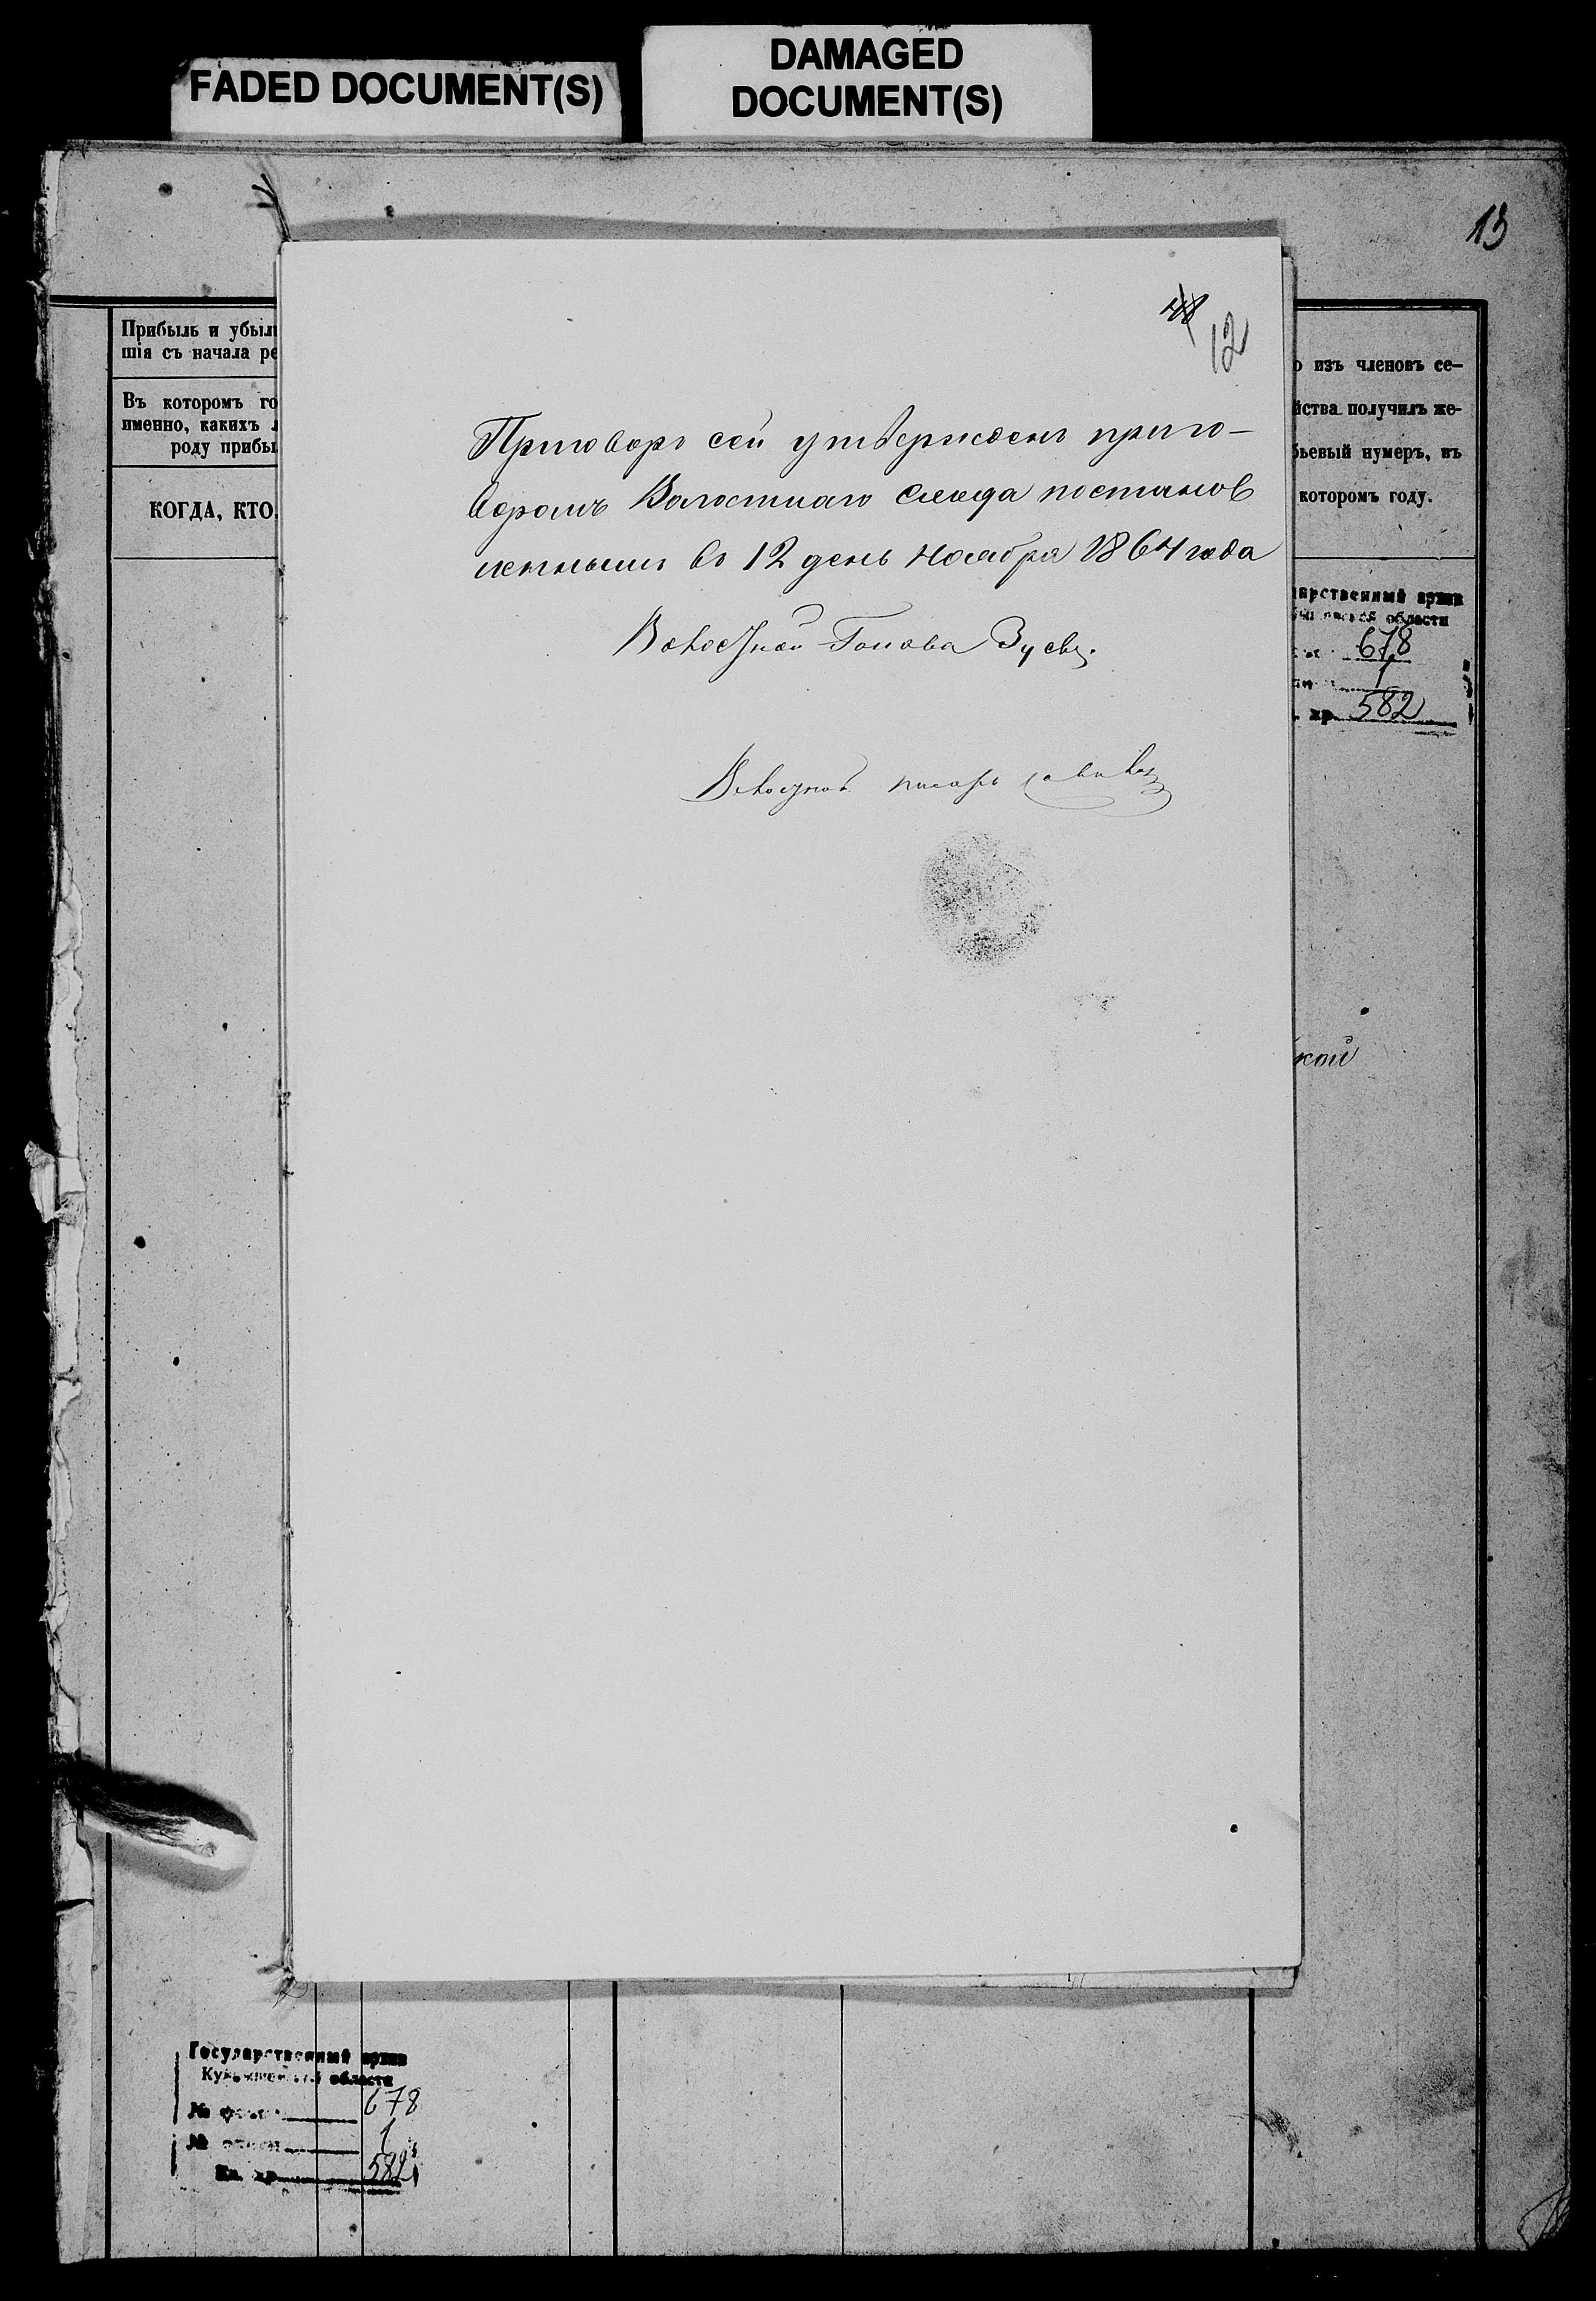 FADED DOCUMENT(S)
DAMAGED
DOCUMENT(S)
13
Прибыль и убыл
шія съ начала ре
Въ которомъ го
именно, какихъ л
роду прибы
КОГДА, КТО,
о изъ членовъ се-
йства получилъ же-
бьевый нумеръ, въ
которомъ году.
12
Приговоръ сей утвержденъ приго-
воромъ Волостнаго схода постанов
леннымъ въ 12 день ноября 1864 года
Волостной Голова Зуевъ
Волостной писарь
арственный архив
области
678
1
хр. 582
кой
Государственный архив
Куйбышевской области
№ фонда 678
№ описи 1
Ед. хр. 582